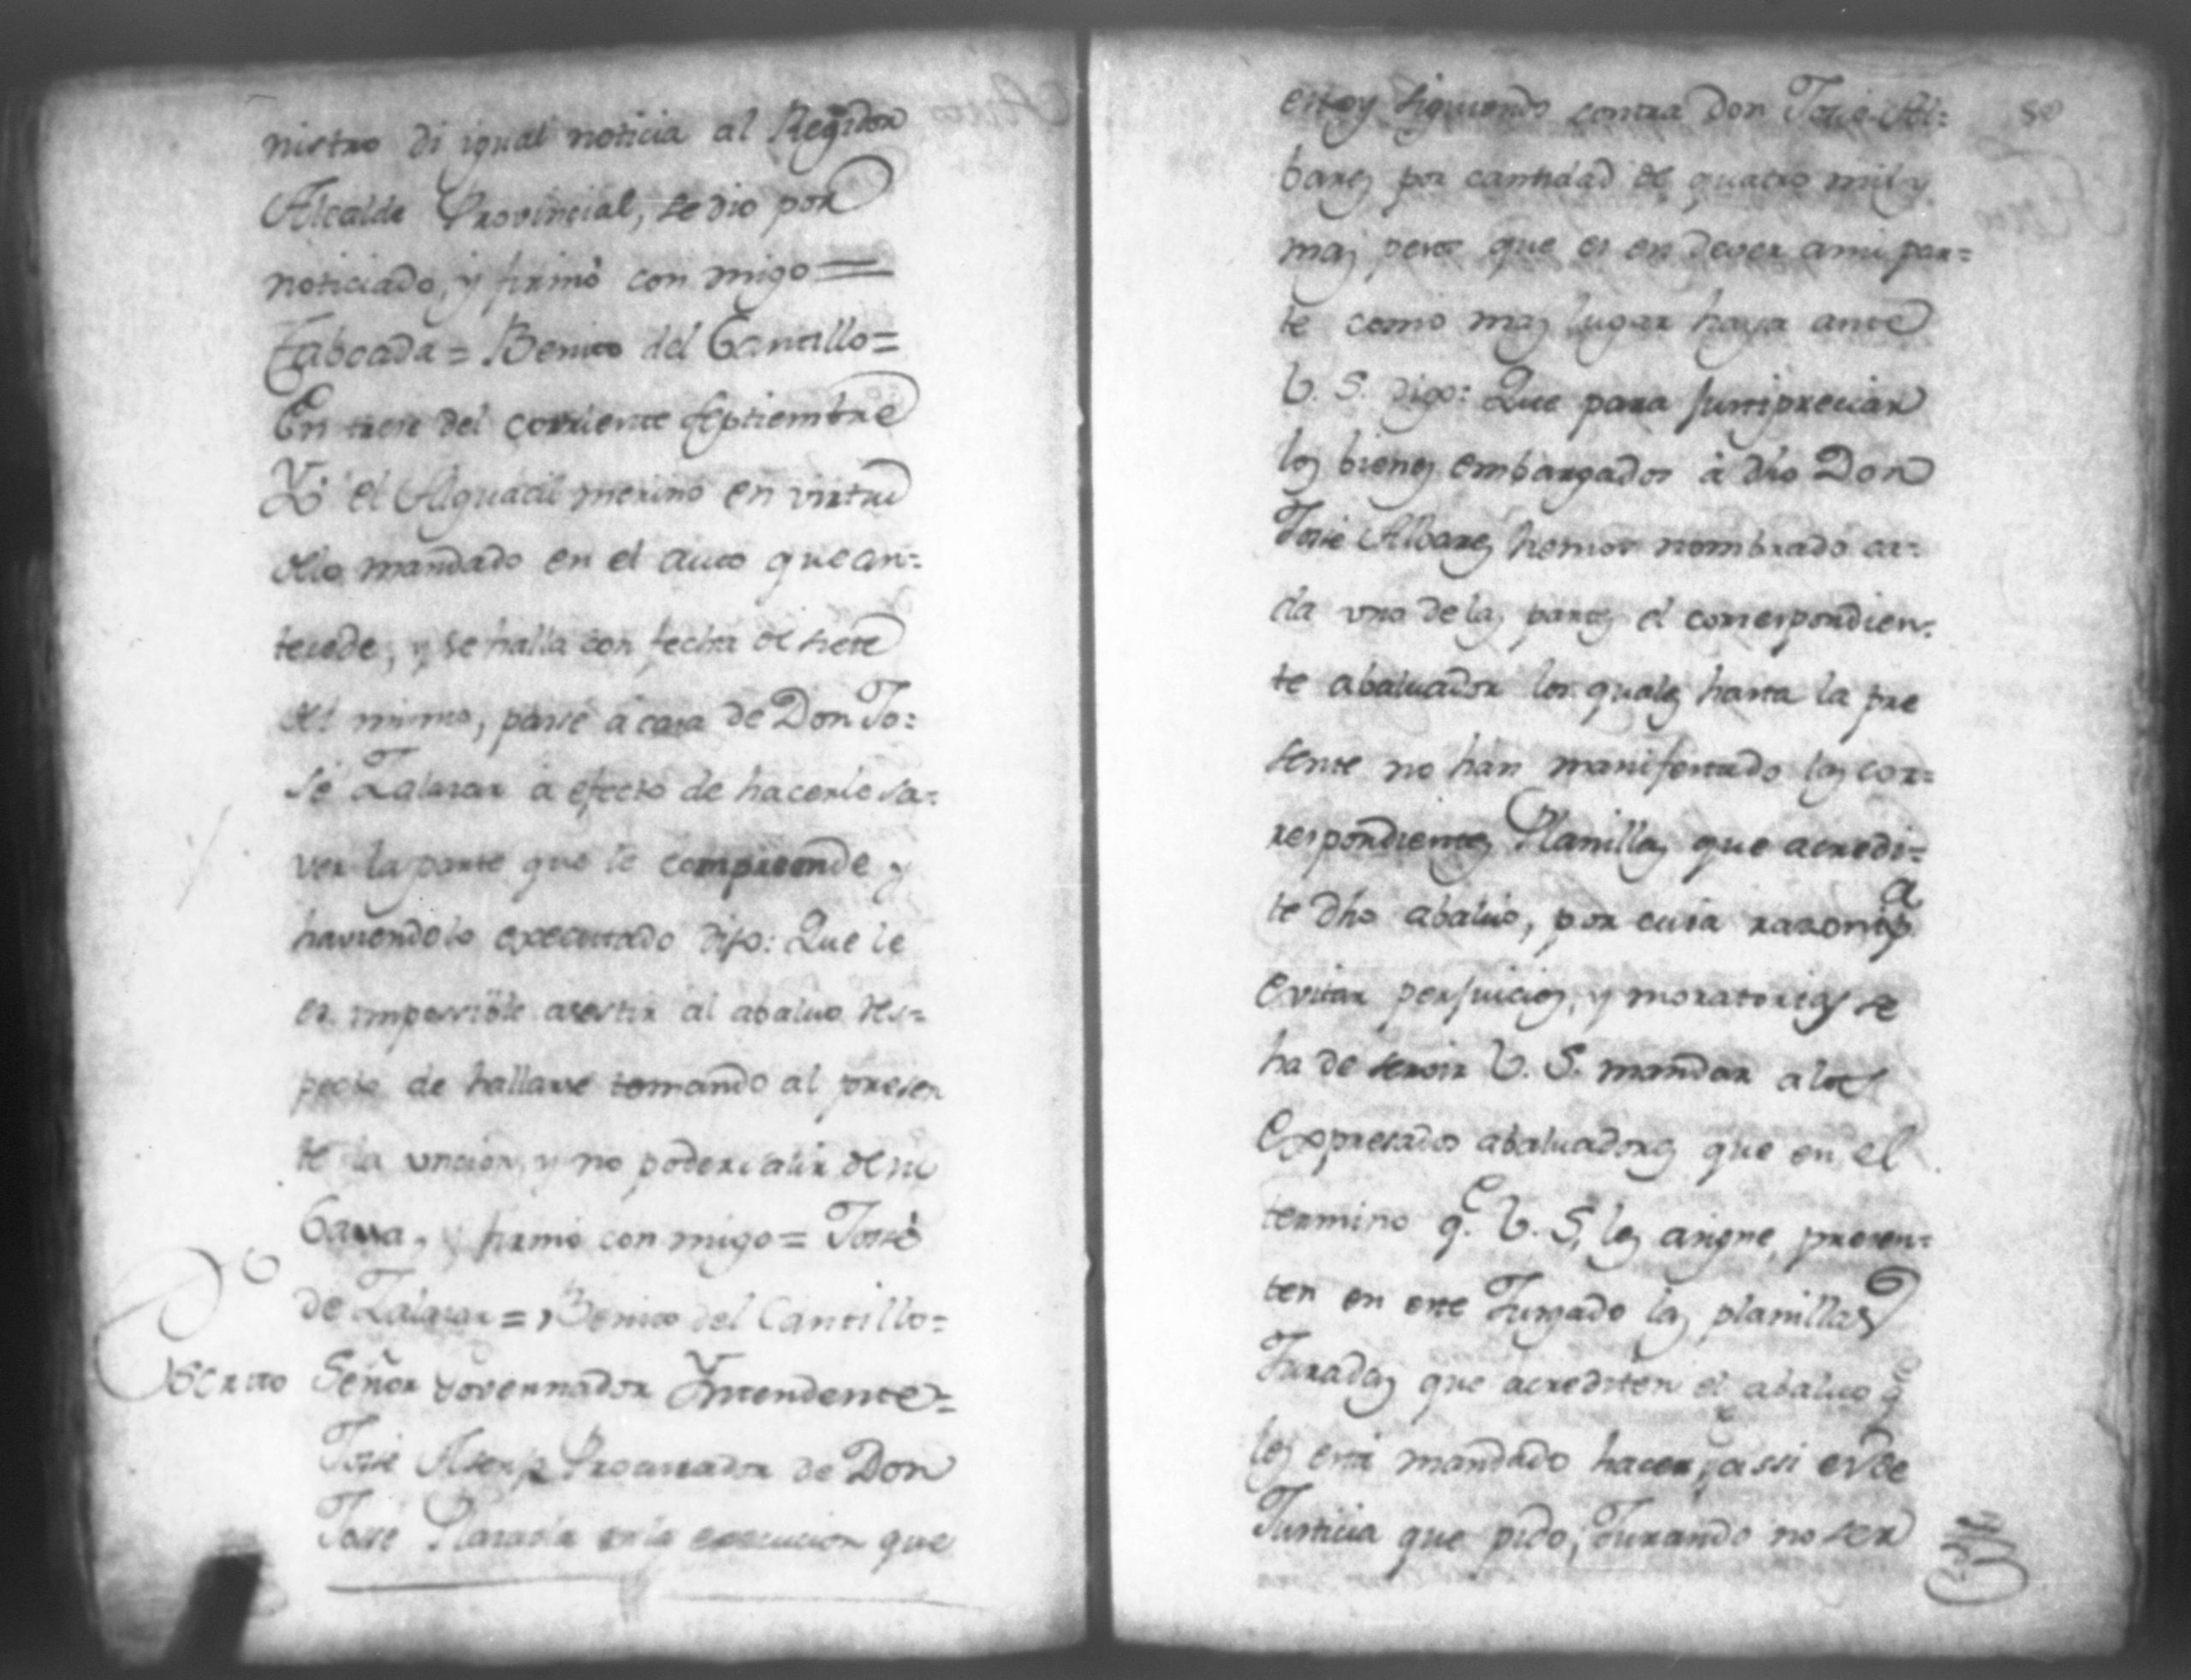 nistro di igual noticia al Regidor
Alcalde Provincial, se dio por
noticiado, y firmó con migo =
Taboada = Benito del Cantillo =
En trese del corriente Septiembre
Yo el Alguacil merino en virtud
delo mandado en el auto que an=
tecede, y se halla con fecha de siete
del mismo, pasé á casa de Don Jo=
sé Zalasar á efecto de hacerle sa=
ver la parte que le comprende y
haviendolo executado dijo: Que le
es imposible asestir al abaluo res=
pecto de hallarse tomando al presen
te la uncion, y no poder salir de su
Cassa, y firmó con migo = José
de Zalasar = Benito del Cantillo =
Escrito Señor Governador Yntendente =
José Asensio Procurador de Don
José en la execucion que
estoy siguiendo contra Don José Al=
bares por cantidad de quatro mil y
mas pesos que es en dever a mi par=
te como mas lugar haya ante
V. S. digo: Que para justipreciar
los bienes embargados á dho Don
José Albares hemos nombrado ca=
da uno de las partes el correspondien=
te abaluador los quales hasta la pre
sente no han manifestado las cor=
respondientes Planillas que acredi=
te dho abaluo, por cuia razon, pa
evitar perjuicios, y moratorias se
ha de servir V. S. mandar a los
Expresados abaluadores que en el
termino qe. V. S. les asigne, presen=
ten en este Jusgado las planillas
Juradas que acrediten el abaluo qe
les está mandado hacer, y assi es de
Justicia que pido, Jurando no ser